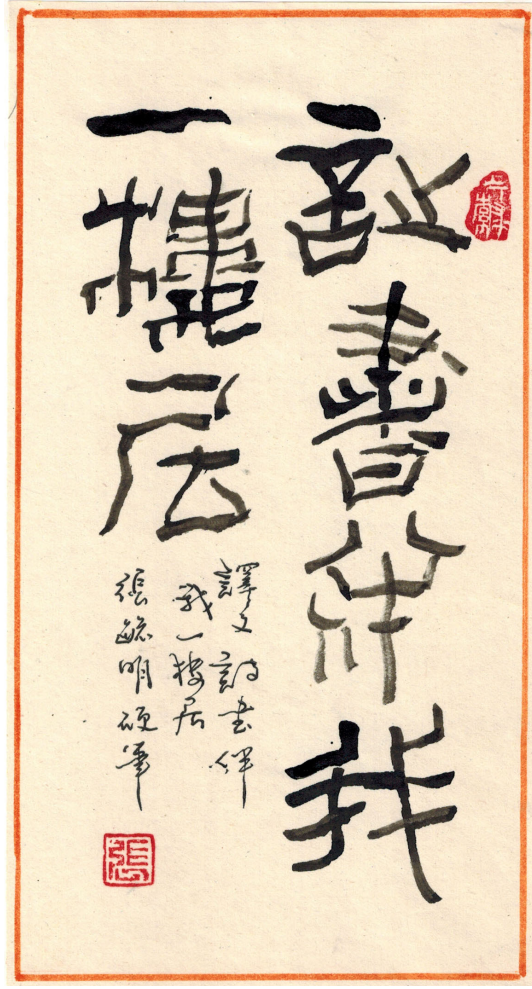 詩書伴我
一樓居
譯文詩書伴
我一樓居
張毓明硬筆
張